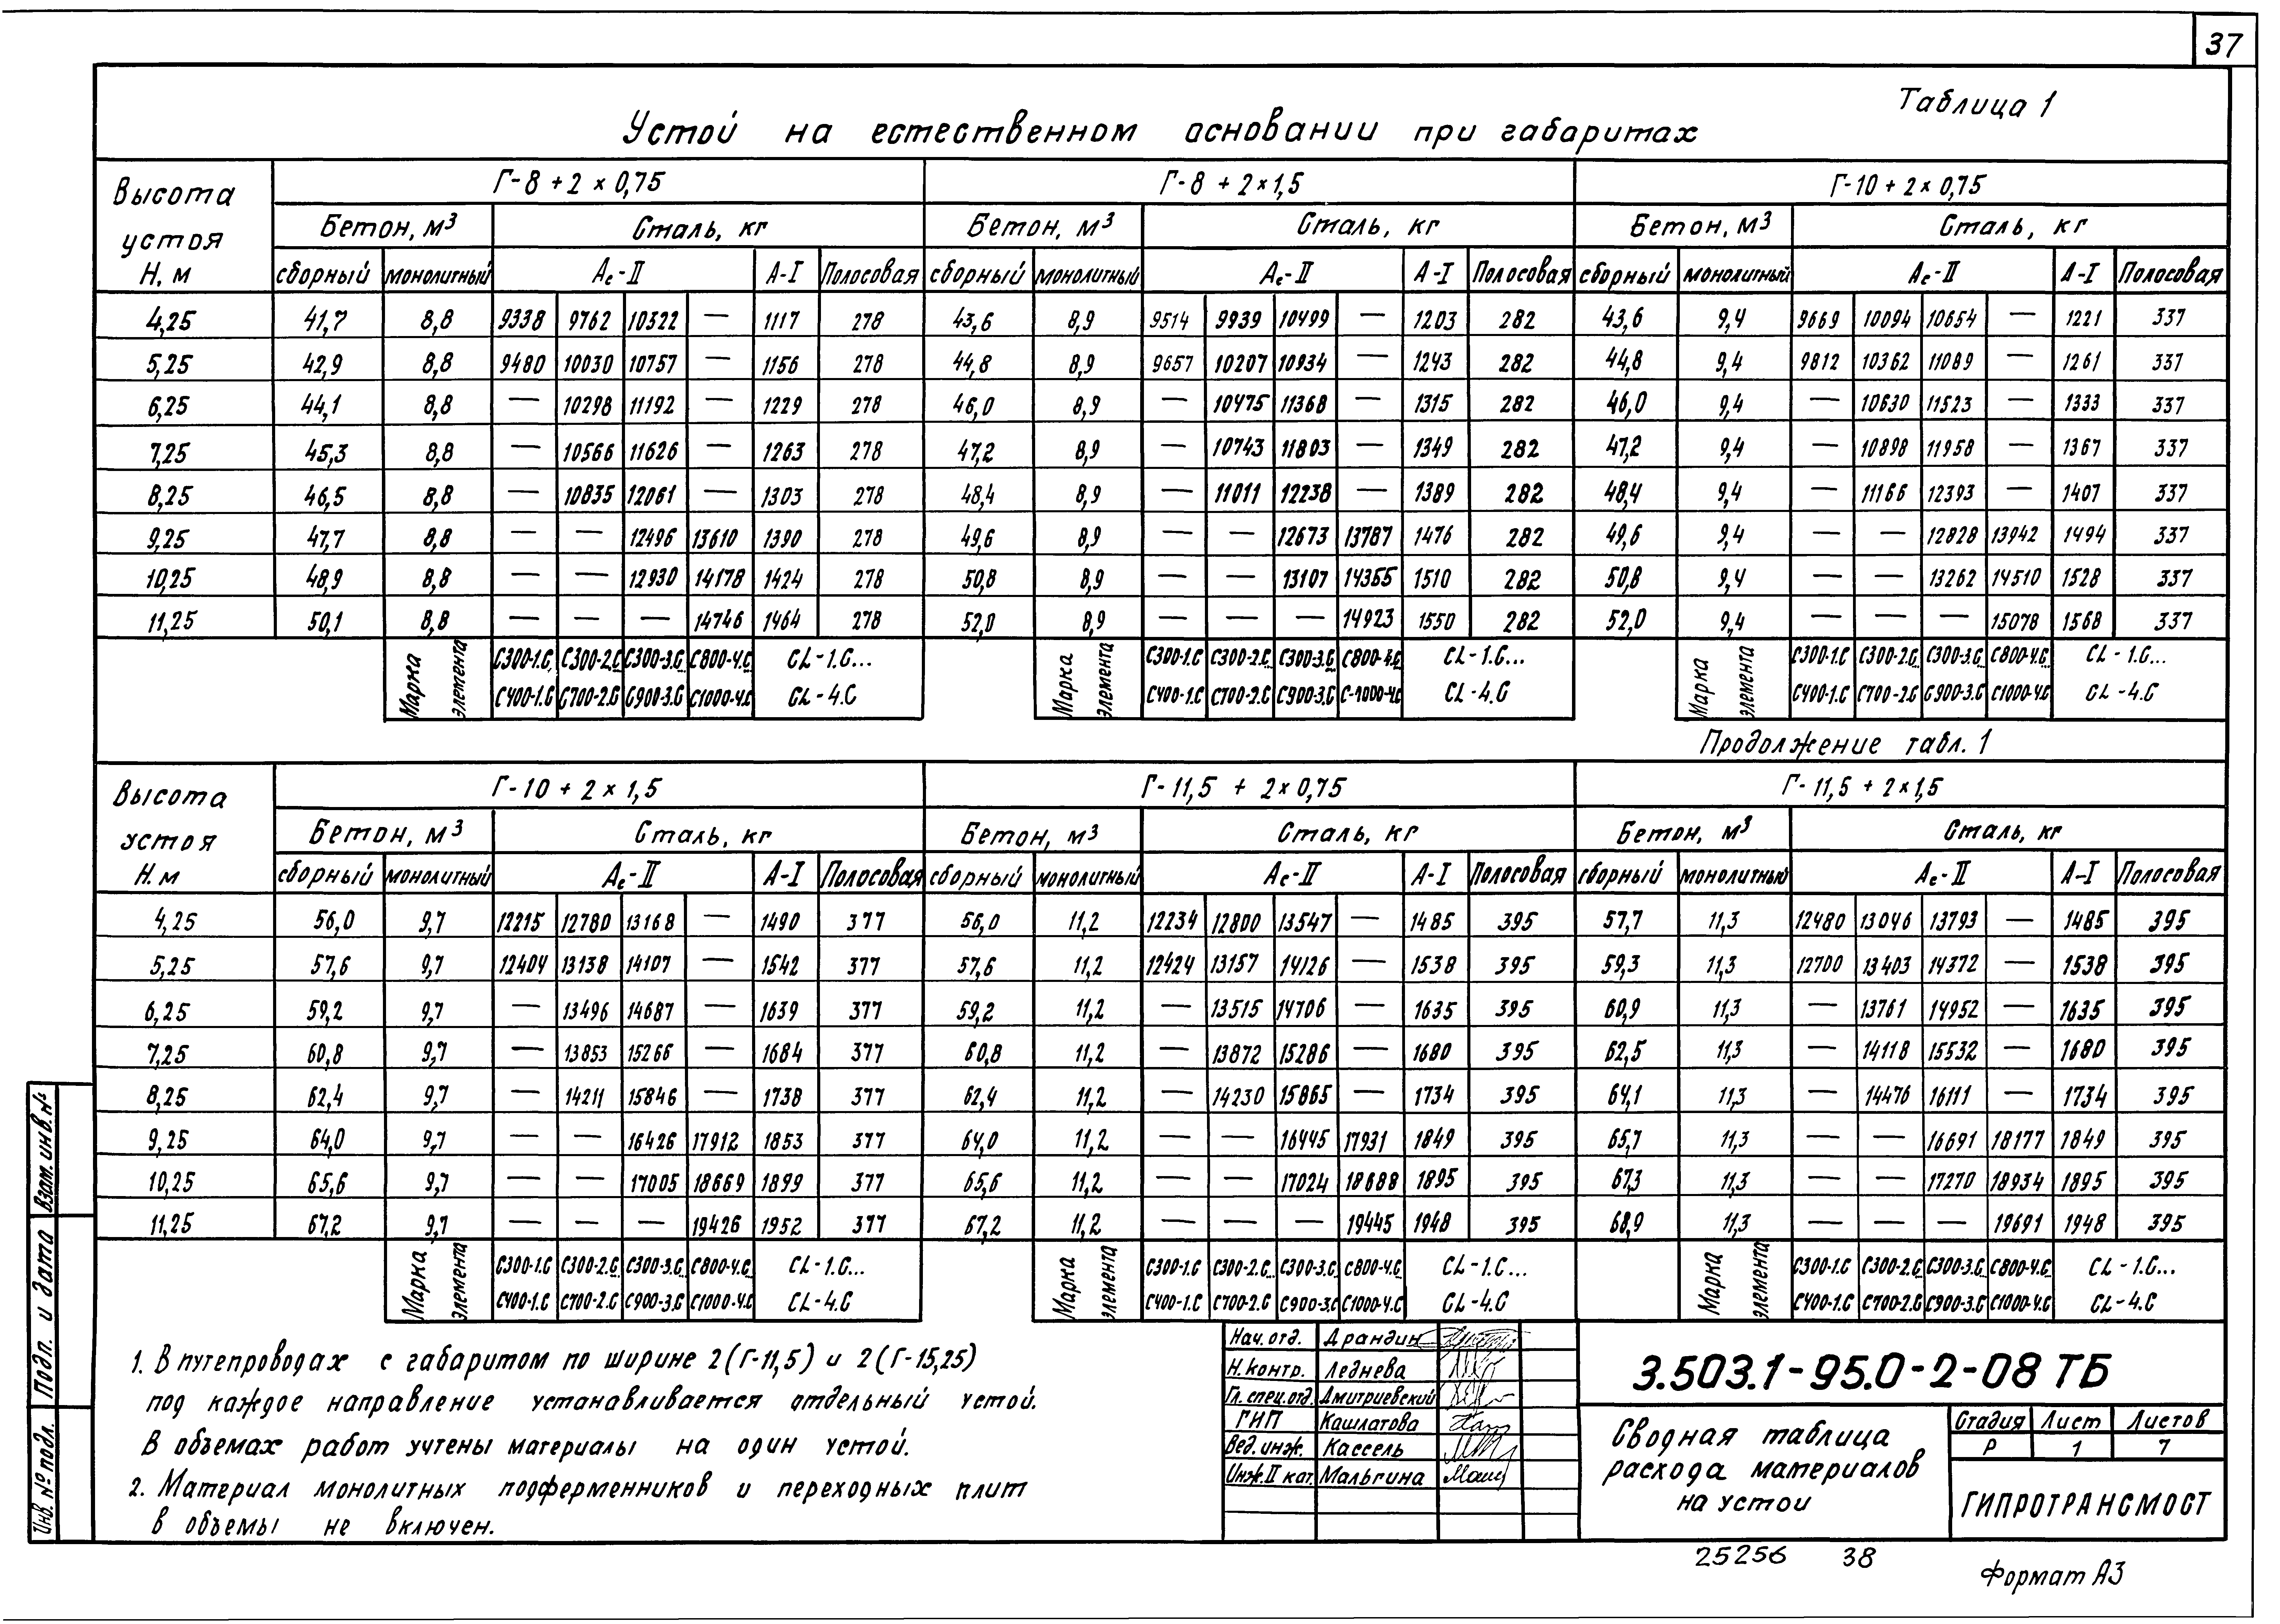 37
Таблица 1
Устой на естественном основании при габаритах
Высота устоя Н, м | Г-8 + 2 × 0,75 | Г-8 + 2×1,5 | Г-10 + 2 × 0,75
Бетон, м³ | Сталь, кг | Бетон, м³ | Сталь, кг | Бетон, м³ | Сталь, кг
сборный | монолитный | Ас-II | А-I | Полосовая | сборный | монолитный | Ас-II | А-I | Полосовая | сборный | монолитный | Ас-II | А-I | Полосовая
4,25 | 41,7 | 8,8 | 9338 | 9762 | 10322 | — | 1117 | 278 | 43,6 | 8,9 | 9514 | 9939 | 10499 | — | 1203 | 282 | 43,6 | 9,4 | 9669 | 10094 | 10654 | — | 1221 | 337
5,25 | 42,9 | 8,8 | 9480 | 10030 | 10757 | — | 1156 | 278 | 44,8 | 8,9 | 9657 | 10207 | 10934 | — | 1243 | 282 | 44,8 | 9,4 | 9812 | 10362 | 11089 | — | 1261 | 337
6,25 | 44,1 | 8,8 | — | 10298 | 11192 | — | 1229 | 278 | 46,0 | 8,9 | — | 10475 | 11368 | — | 1315 | 282 | 46,0 | 9,4 | — | 10630 | 11523 | — | 1333 | 337
7,25 | 45,3 | 8,8 | — | 10566 | 11626 | — | 1263 | 278 | 47,2 | 8,9 | — | 10743 | 11803 | — | 1349 | 282 | 47,2 | 9,4 | — | 10898 | 11958 | — | 1367 | 337
8,25 | 46,5 | 8,8 | — | 10835 | 12061 | — | 1303 | 278 | 48,4 | 8,9 | — | 11011 | 12238 | — | 1389 | 282 | 48,4 | 9,4 | — | 11166 | 12393 | — | 1407 | 337
9,25 | 47,7 | 8,8 | — | — | 12496 | 13610 | 1390 | 278 | 49,6 | 8,9 | — | — | 12673 | 13787 | 1476 | 282 | 49,6 | 9,4 | — | — | 12828 | 13942 | 1494 | 337
10,25 | 48,9 | 8,8 | — | — | 12930 | 14178 | 1424 | 278 | 50,8 | 8,9 | — | — | 13107 | 14355 | 1510 | 282 | 50,8 | 9,4 | — | — | 13262 | 14510 | 1528 | 337
11,25 | 50,1 | 8,8 | — | — | — | 14746 | 1464 | 278 | 52,0 | 8,9 | — | — | — | 14923 | 1550 | 282 | 52,0 | 9,4 | — | — | — | 15078 | 1568 | 337
Марка элемента | С300-1.С, | С300-2.С | С300-3.С | С800-4.С | СL-1.С... | Марка элемента | С300-1.С | С300-2.С | С300-3.С | С800-4.С | СL-1.С... | Марка элемента | С300-1.С | С300-2.С | С300-3.С | С800-4.С | СL-1.С...
С400-1.С | С700-2.С | С900-3.С | С1000-4.С | СL-4.С | С400-1.С | С700-2.С | С900-3.С | С-1000-4.С | СL-4.С | С400-1.С | С700-2.С | С900-3.С | С1000-4.С | СL-4.С
Продолжение табл. 1
Высота устоя Н. м | Г-10 + 2 × 1,5 | Г-11,5 + 2×0,75 | Г-11,5 + 2×1,5
Бетон, м³ | Сталь, кг | Бетон, м³ | Сталь, кг | Бетон, м³ | Сталь, кг
сборный | монолитный | Ас-II | А-I | Полосовая | сборный | монолитный | Ас-II | А-I | Полосовая | сборный | монолитный | Ас-II | А-I | Полосовая
4,25 | 56,0 | 9,7 | 12215 | 12780 | 13168 | — | 1490 | 377 | 56,0 | 11,2 | 12234 | 12800 | 13547 | — | 1485 | 395 | 57,7 | 11,3 | 12480 | 13046 | 13793 | — | 1485 | 395
5,25 | 57,6 | 9,7 | 12404 | 13138 | 14107 | — | 1542 | 377 | 57,6 | 11,2 | 12424 | 13157 | 14126 | — | 1538 | 395 | 59,3 | 11,3 | 12700 | 13403 | 14372 | — | 1538 | 395
6,25 | 59,2 | 9,7 | — | 13496 | 14687 | — | 1639 | 377 | 59,2 | 11,2 | — | 13515 | 14706 | — | 1635 | 395 | 60,9 | 11,3 | — | 13761 | 14952 | — | 1635 | 395
7,25 | 60,8 | 9,7 | — | 13853 | 15266 | — | 1684 | 377 | 60,8 | 11,2 | — | 13872 | 15286 | — | 1680 | 395 | 62,5 | 11,3 | — | 14118 | 15532 | — | 1680 | 395
8,25 | 62,4 | 9,7 | — | 14211 | 15846 | — | 1738 | 377 | 62,4 | 11,2 | — | 14230 | 15865 | — | 1734 | 395 | 64,1 | 11,3 | — | 14476 | 16111 | — | 1734 | 395
9,25 | 64,0 | 9,7 | — | — | 16426 | 17912 | 1853 | 377 | 64,0 | 11,2 | — | — | 16445 | 17931 | 1849 | 395 | 65,7 | 11,3 | — | — | 16691 | 18177 | 1849 | 395
10,25 | 65,6 | 9,7 | — | — | 17005 | 18669 | 1899 | 377 | 65,6 | 11,2 | — | — | 17024 | 18688 | 1895 | 395 | 67,3 | 11,3 | — | — | 17270 | 18934 | 1895 | 395
11,25 | 67,2 | 9,7 | — | — | — | 19426 | 1952 | 377 | 67,2 | 11,2 | — | — | — | 19445 | 1948 | 395 | 68,9 | 11,3 | — | — | — | 19691 | 1948 | 395
Марка элемента | С300-1.С | С300-2.С | С300-3.С | С800-4.С | СL-1.С... | Марка элемента | С300-1.С | С300-2.С | С300-3.С | С800-4.С | СL-1.С... | Марка элемента | С300-1.С | С300-2.С | С300-3.С | С800-4.С | СL-1.С...
С400-1.С | С700-2.С | С900-3.С | С1000-4.С | СL-4.С | С400-1.С | С700-2.С | С900-3.С | С1000-4.С | СL-4.С | С400-1.С | С700-2.С | С900-3.С | С1000-4.С | СL-4.С
1. В путепроводах с габаритом по ширине 2(Г-11,5) и 2(Г-15,25)
под каждое направление устанавливается отдельный устой.
В объемах работ учтены материалы на один устой.
2. Материал монолитных подферменников и переходных плит
в объемы не включен.
Нач. отд. Драндин
Н. контр. Леднева
Гл. спец. отд. Дмитриевский
ГИП Кашлатова
Вед. инж. Кассель
Инж. II кат. Мальгина
3.503.1-95.0-2-08 ТБ
Сводная таблица
расхода материалов
на устои
Стадия | Лист | Листов
Р | 1 | 7
ГИПРОТРАНСМОСТ
25256 38
Формат А3
Взам. инв. №
Подп. и дата
Инв. № подл.